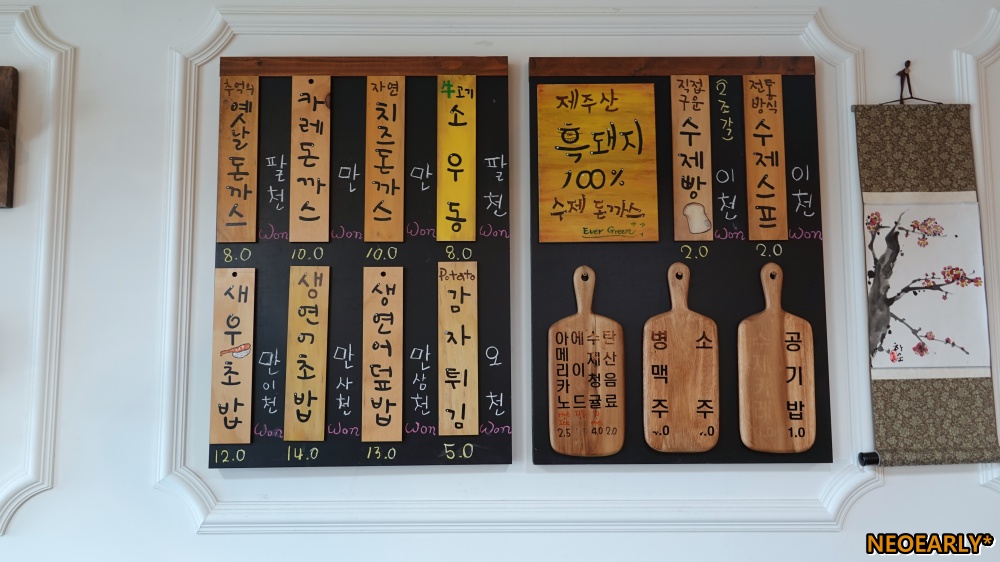 추억의 옛날돈까스
팔천
Won
8.0
카레돈까스
만
Won
10.0
자연 치즈돈까스
만
Won
10.0
牛고기 소우동
팔천
Won
8.0
새우초밥
만이천
Won
12.0
생연어초밥
만사천
Won
14.0
생연어덮밥
만삼천
Won
13.0
Potato 감자튀김
오천
Won
5.0
제주산
흑돼지
100%
수제 돈까스
Ever Green
직접구운 수제빵
(2조각)
이천
Won
2.0
전통방식 수제스프
이천
Won
2.0
아메리카노
2.5
에이드
4.0
수제청귤
탄산음료
2.0
병맥주
소주
공기밥
1.0
NEOEARLY*